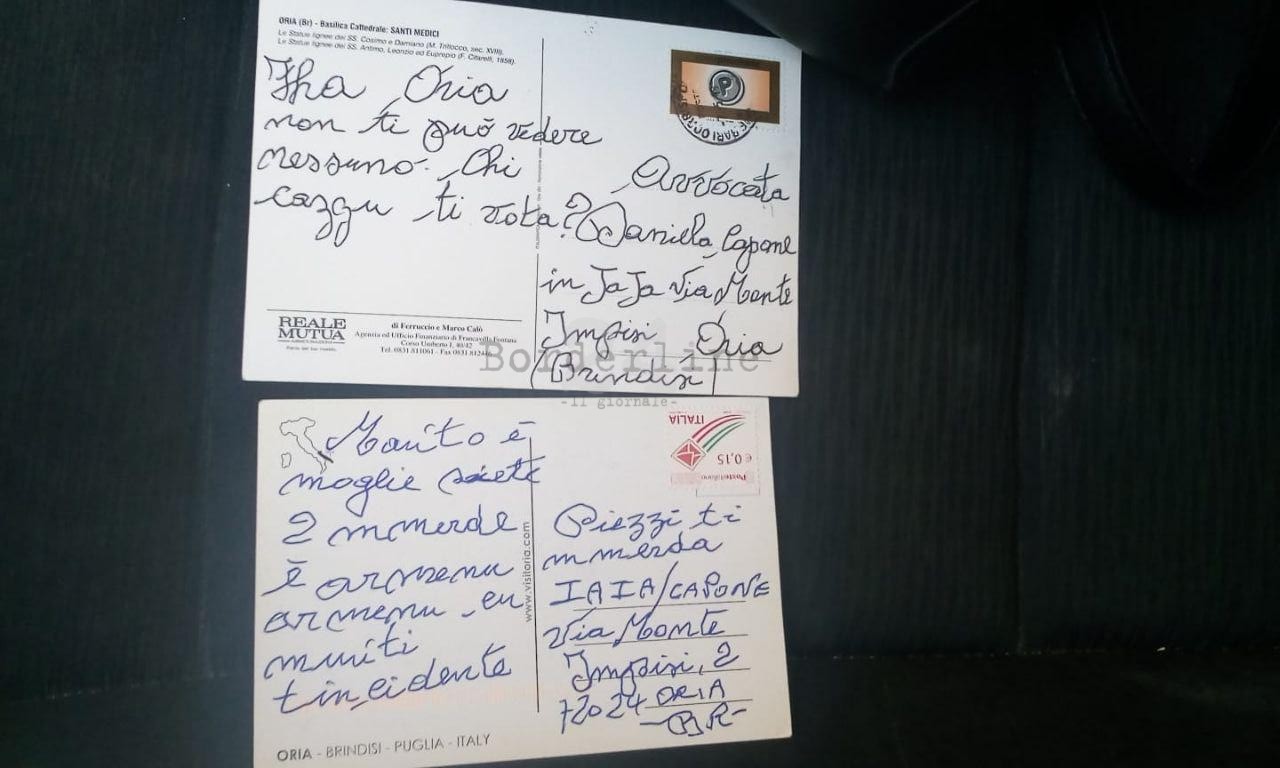 ORIA (Br) - Basilica Cattedrale: SANTI MEDICI
Le Statue lignee dei SS. Cosimo e Damiano (M. Trillocco, sec. XVIII).
Le Statue lignee dei SS. Antimo, Leonzio ed Euprepio (F. Citarelli, 1858).
Jha Oria
non ti può vedere
nessuno. Chi
cazzu ti vota?
Avvocata
Daniela Capone
in JaJa Via Monte
Impisi Oria
(Brindisi)
REALE
MUTUA
di Ferruccio e Marco Calò
Agenzia ed Ufficio Finanziario di Francavilla Fontana
Corso Umberto I, 40/42
Tel. 0831 811061 - Fax 0831 812446
Borderline
-Il giornale-
Marito è
moglie siete
2 mmerde
è armenu
armenu cu
muriti
tincidente
www.visitoria.com
ITALIA
€ 0,15
Posteitaliane
Piezzi ti
mmerda
IAIA/CAPONE
Via Monte
Impisi, 2
72024 ORIA
-BR-
ORIA - BRINDISI - PUGLIA - ITALY